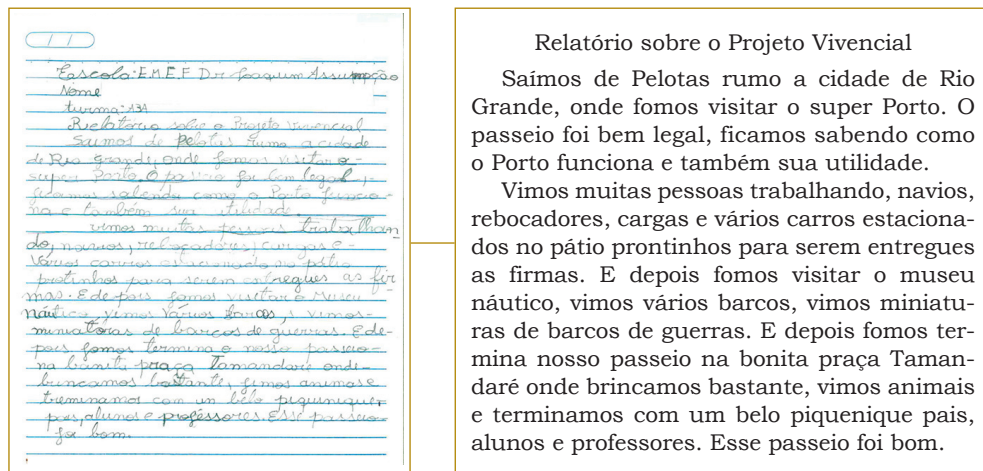 Escola: E.M.E.F Dr Joaquim Assumpção
Nome
turma: A3A
Relatório sobre o Projeto Vivencial
Saimos de Pelotas rumo a cidade
de Rio grande, onde fomos visitar o
super Porto. O passeio foi bem legal,
ficamos sabendo como o Porto funcio
na e também sua utilidade.
vimos muitas pessoas trabalhan
do, navios, rebocadores, cargas e
vários carros estacionado no pátio
protinhos para serem entregues as fir
mas. E depois fomos visitar o Museu
náutico, vimos vários barcos, vimos
miniatoras de barcos de guerras. E de
pois fomos termina o nosso passeio
na bonita praça Tamandaré onde
brincamos bastante, vimos animas e
treminamos com un belo piqueniquer
pais, alunos e professores. Esse passeio
foi bom.
Relatório sobre o Projeto Vivencial
Saímos de Pelotas rumo a cidade de Rio
Grande, onde fomos visitar o super Porto. O
passeio foi bem legal, ficamos sabendo como
o Porto funciona e também sua utilidade.
Vimos muitas pessoas trabalhando, navios,
rebocadores, cargas e vários carros estaciona-
dos no pátio prontinhos para serem entregues
as firmas. E depois fomos visitar o museu
náutico, vimos vários barcos, vimos miniatu-
ras de barcos de guerras. E depois fomos ter-
mina nosso passeio na bonita praça Taman-
daré onde brincamos bastante, vimos animais
e terminamos com um belo piquenique pais,
alunos e professores. Esse passeio foi bom.